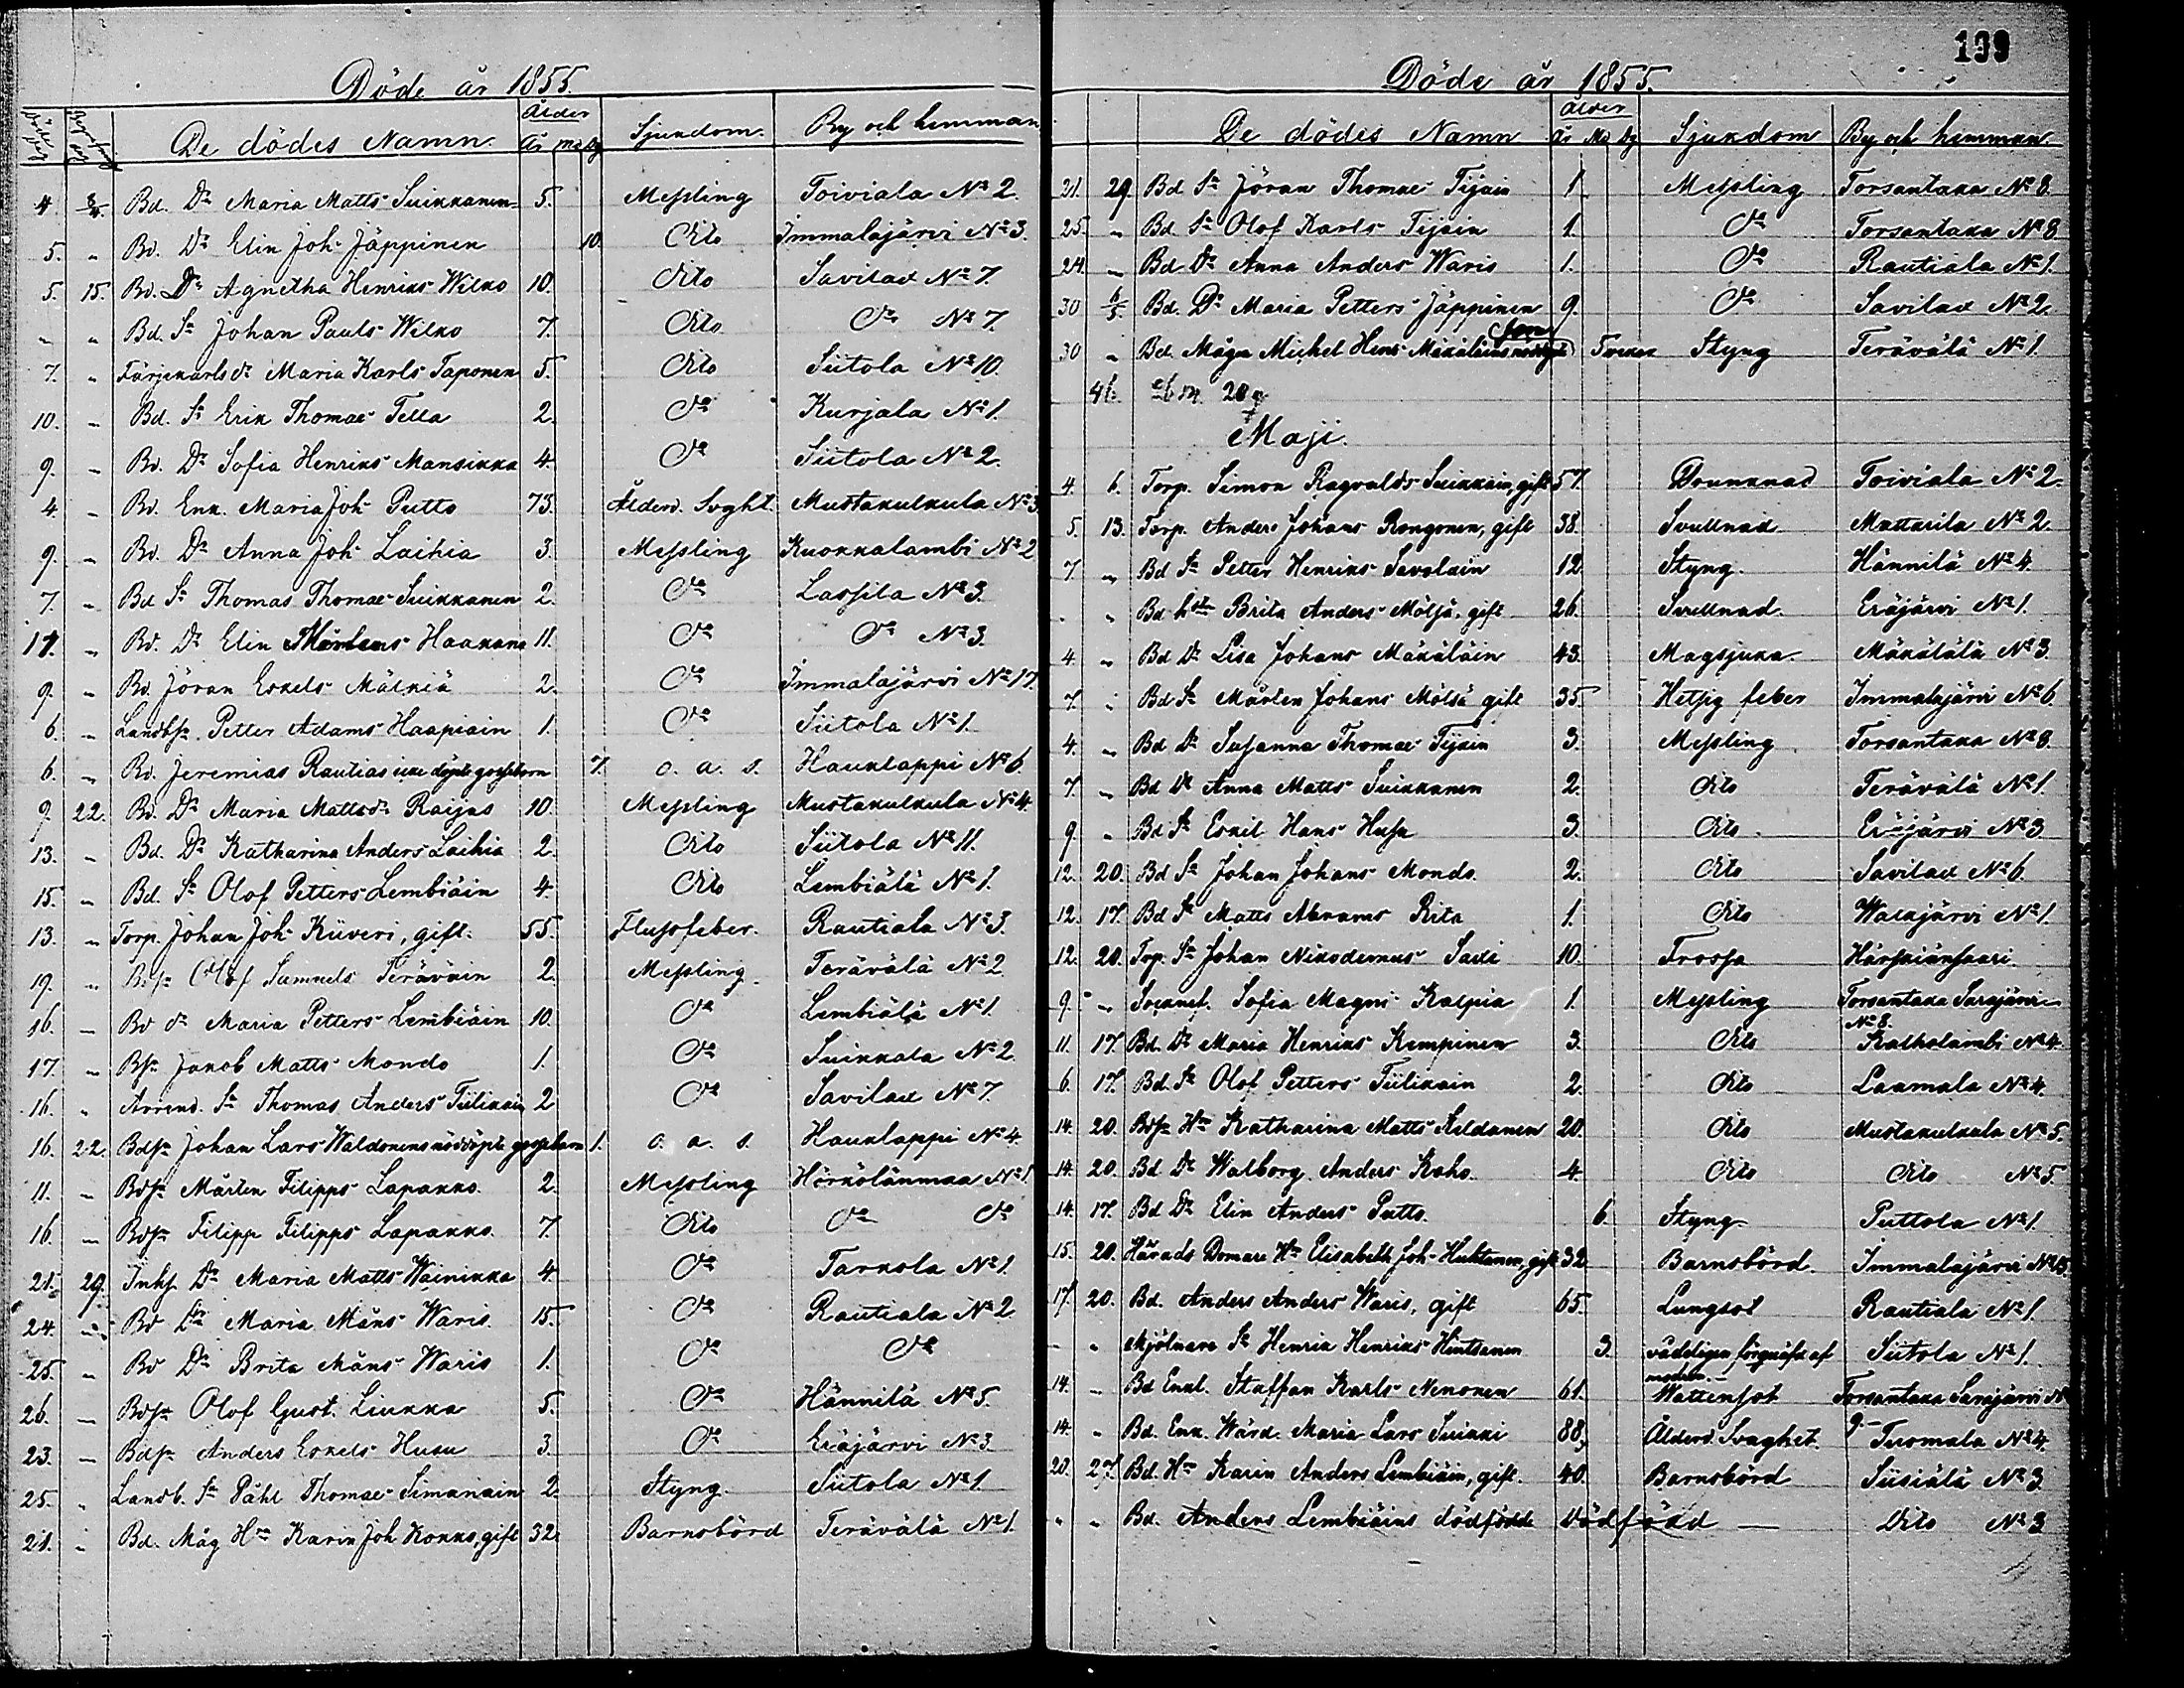 Döde år 1855.
Död dag Begrafn. dag De dödes Namn. Ålder År ma dg Sjukdom. By och hemman
4. 8/4. Bd. Dr Maria Matts Suikkanen 5. Messling Toiviala No 2.
5. " Bd. Dr Elin Joh. Jäppinen 10. Dito Immalajärvi No 3.
5. 15. Bd. Dr Agnetha Henriks Wilko 10. Dito Savilax No 7.
" " Bd. Sn Johan Pauls Wilko 7. Dito Do No 7.
7. " Färjekarls dr Maria Karls Taponen 5. Dito Siitola No 10.
10. " Bd. Sn Erik Thomae Tella 2. Do Kurjala No 1.
9. " Bd. Dr Sofia Henriks Mansikka 4. Do Siitola No 2.
4. " Bd. Enk. Maria Joh. Putto 73. Ålderd. Svght. Mustakulkula No 3.
9. " Bd. Dr Anna Joh. Laihia 3. Messling Kuokkalambi No 2
7. " Bd Sn Thomas Thomae Suikkanen 2. Do Lassila No 3.
17. " Bd. Dr Elin Mårtens Haakana 11. Do Do No 3.
9. " Bd. Jöran Eskels Mälkiä 2. Do Immalajärvi No 17.
6. " Landbsn. Petter Adams Haapiain 1. Do Siitola No 1.
6. " Bd. Jeremias Rautias icke döpte gossebarn 7. o. a. s. Hauklappi No 6.
9. 22. Bd. Dr Maria Mattsdr Raijas 10. Messling Mustakulkula No 4.
13. " Bd. Dr Katharina Anders Laihia 2. Dito Siitola No 11.
15. " Bd. Sn Olof Petters Lembiäin 4. Dito Lembiälä No 1.
13. " Torp. Johan Joh. Kiiveri, gift. 55. Flussfeber. Rautiala No 3.
19. " Bdsn Olof Samuels Teräväin 2. Messling Terävälä No 2
16. " Bd dr Maria Petters Lembiäin 10. Do Lembiälä No 1.
17. " Bsn Jakob Matts Mondo 1. Do Suikkala No 2
16. " Arrend. Sn Thomas Anders Tiilikain 2 Do Savilax No 7.
16. 22. Bdsn Johan Lars Waldonens nöddöpte gossebarn 1. o. a. s. Hauklappi No 4.
11. " Bdsn Mårten Filipps Lapakko. 2. Messling Hörkölänmaa No 1.
16. " Bdsn Filipp Filipps Lapakko. 7. Dito Do Do
21. 29. Inhs Dr Maria Matts Wainikka 4. Do Tarkola No 1.
24. " Bd Dr Maria Måns Waris. 15. Do Rautiala No 2
25. " Bd Dr Brita Måns Waris 1. Do Do
26. " Bdsn Olof Gust. Liukka 5. Do Hännilä No 5.
23. " Bdsn Anders Eskels Husu 3. Do Eräjärvi No 3
25. " Landb. Sn Påhl Thomae Simanain 2. Styng Siitola No 1
21. " Bd. Måg Hu Karin Joh Kokko, gift 32. Barnsbörd Terävälä No 1.
199
Döde år 1855.
De dödes Namn Ålder År Ma Dg Sjukdom By och hemman.
21. 29. Bd Sn Jöran Thomae Tijain 1. Messling Torsantaka No 8.
25. " Bd. Sn Olof Karls Tijain 1. Do Torsantaka No 8
24. " Bd Dr Anna Anders Waris 1. Do Rautiala No 1.
30 6/5 Bd. Dr Maria Petters Jäppinen 9. Do Savilax No 2.
30 " Bd. Mågn Michel Henr. Mäkäläins nöddöpt Son 5 veckor Styng Terävälä No 1.
46. 26 m. 20 q
Maji.
4. 6. Torp. Simon Ragvalds Suikkain, gift 57. Drunknad Toiviala No 2.
5. 13. Torp. Anders Johans Rongonen, gift 38. Svullnad Mattarila No 2.
7. " Bd Sn Petter Henriks Savolain 12 Styng. Hännilä No 4.
" " Bd hu Brita Anders Mölsä, gift 26. Svullnad Eräjärvi No 1.
4. " Bd Dr Lisa Johans Mäkäläin 43. Magsjuka. Mäkälälä No 3.
7. " Bd Sn Mårten Johans Mölsä gift 35. Hetsig feber Immalajärvi No 6.
4. " Bd Dr Susanna Thomae Tijain 3. Messling Torsantaka No 8.
7. " Bd Dr Anna Matts Suikkanen 2. Dito Terävälä No 1.
9. " Bd Sn Eskil Hans Husu 3. Dito Eräjärvi No 3
12. 20. Bd Sn Johan Johans Mondo. 2. Dito Savilax No 6.
12. 17. Bd Sn Matts Abrams Kita 1. Dito Walkjärvi No 1.
12. 20. Torp. Sn Johan Nikodemus Saxi 10. Trossa Härskiänsaari.
9. " Sockenst. Sofia Magni Karpia 1. Messling Torsantaka Sarajärvi No 8.
11. 17. Bd. Dr Maria Henriks Kempinen 3. Dito Kalholambi No 4.
6. 17. Bd. Sn Olof Petters Tiilikain 2. Dito Laamala No 4.
14. 20. Bdsn Hu Katharina Matts Kildanen 20. Dito Mustakulkula No 5.
14. 20. Bd Dr Walborg Anders Koho. 4. Dito Dito No 5.
14. 17. Bd Dr Elin Anders Putto. 6. Styng. Puttola No 1.
15. 20. Härads Domare Hu Elisabeth Joh. Huhtanen, gift 32 Barnsbörd Immalajärvi No 15.
17. 20. Bd. Anders Anders Waris, gift 65. Lungsot Rautiala No 1.
" " Mjölnare Sn Henrik Henriks Hintsanen 3. vådeligen förqväfd af modren. Siitola No 1.
14. " Bd Enkl. Staffan Karls Nenonen 61. Wattensot Torsantaka Sarajärvi No 9
14. " Bd. Enk. Wård. Maria Lars Suikki 88. Ålderd. Svaghet. Tuomala No 4.
20. 27. Bd. Hu Karin Anders Lembiäin, gift. 40. Barnsbörd Siisiälä No 3
" " Bd. Anders Lembiäins dödfödde dödfödd — Dito No 3